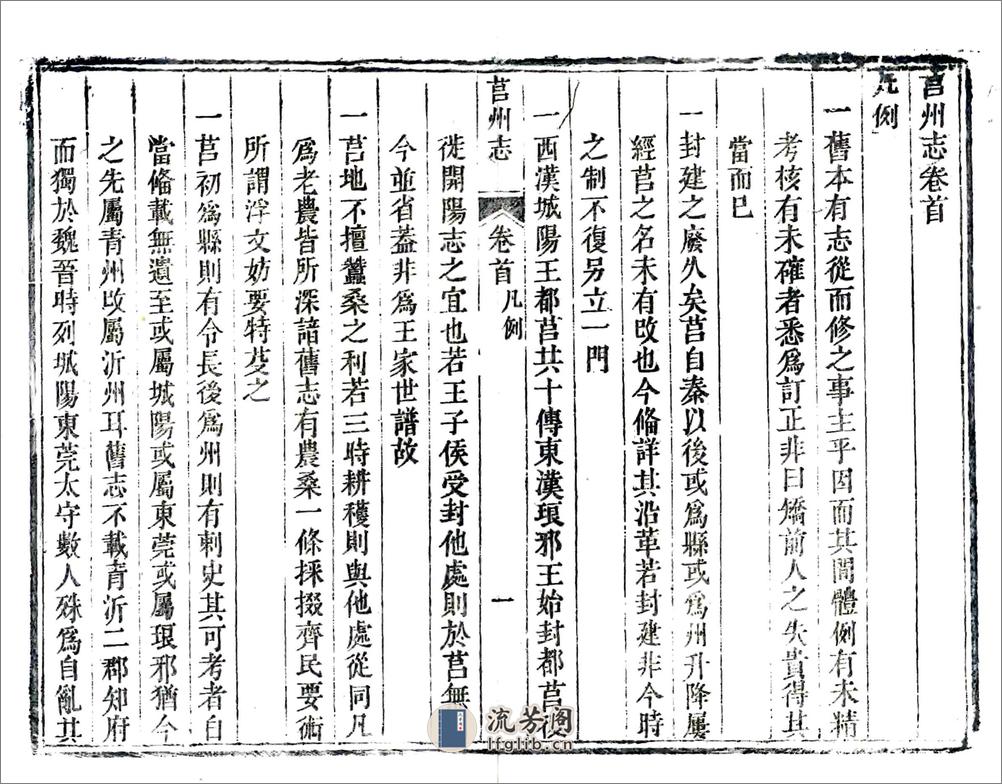 莒州志卷首
凡例
一舊本有志從而修之事主乎因而其間體例有未精
考核有未確者悉爲訂正非曰矯前人之失貴得其
當而已
一封建之廢久矣莒自秦以後或爲縣或爲州升降屢
經莒之名未有改也今備詳其沿革若封建非今時
之制不復另立一門
一西漢城陽王都莒共十傳東漢琅邪王始封都莒後
徙開陽志之宜也若王子侯受封他處則於莒無
今並省蓋非爲王家世譜故
莒州志
卷首 凡例
一
一莒地不擅蠶桑之利若三時耕穫則與他處從同凡
爲老農皆所深諳舊志有農桑一條採掇齊民要術
所謂浮文妨要特芟之
一莒初爲縣則有令長後爲州則有刺史其可考者自
當備載無遺至或屬城陽或屬東莞或屬琅邪猶今
之先屬青州改屬沂州耳舊志不載青沂二郡知府
而獨於魏晉時列城陽東莞太守數人殊爲自亂其
流芳阁
lfglib.cn